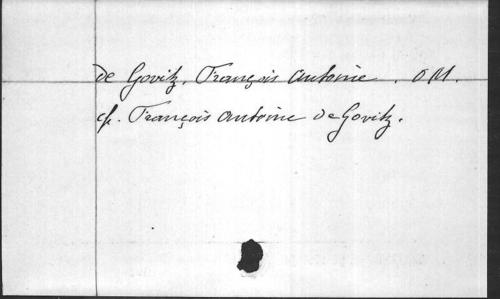 de Govitz, François Antoine. O M.
cf. François Antoine de Govitz.